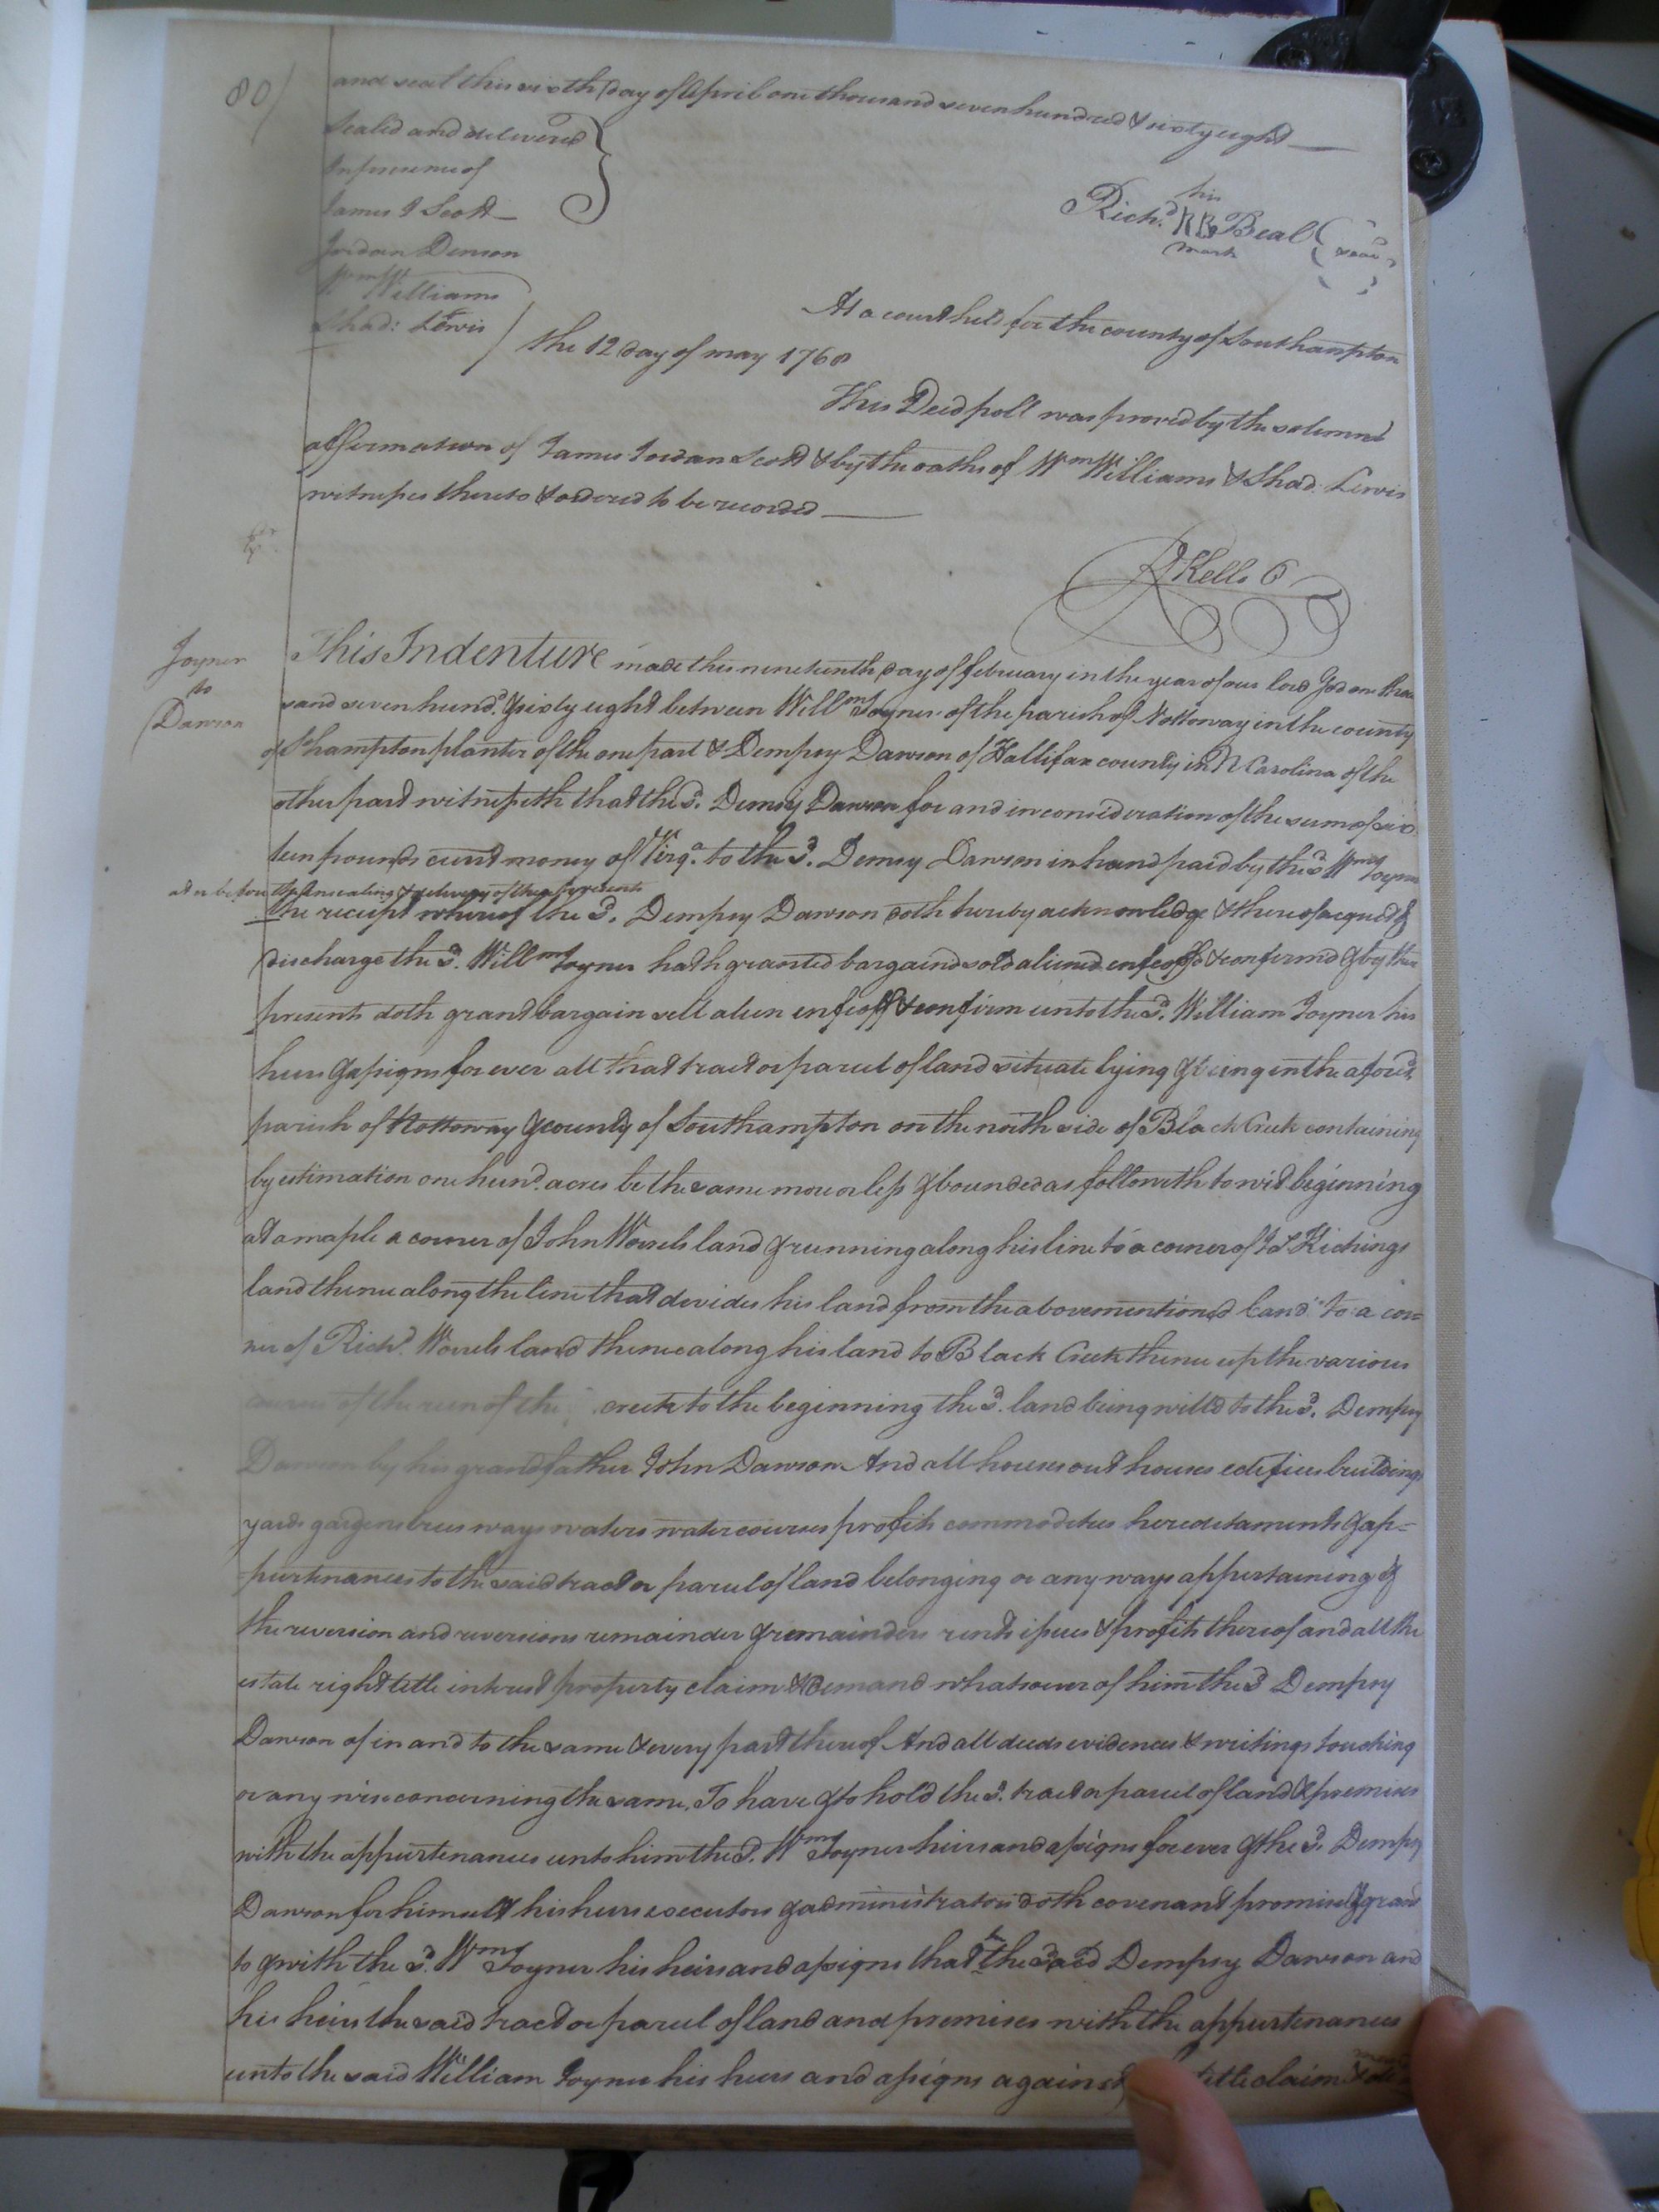 80/
and seal this sixth day of April one thousand seven hundred & sixty eight
Sealed and delivered
In presence of
James J Scott
Jordan Denson
Wm Williams
Shad: Lewis
his
Richd. RB Beal (seal)
mark
At a court held for the county of Southampton
the 12 day of may 1768
This Deed poll was proved by the solemn
affirmation of James Jordan Scott & by the oaths of Wm Williams & Shad: Lewis
witnesses thereto & ordered to be recorded
R Kello C
Joyner
to
Dawson
This Indenture made this nineteenth day of february in the year of our lord God one thou
sand seven hund. & sixty eight between Willm Joyner of the parish of Nottoway in the county
of Shampton planter of the one part & Dempsy Dawson of Hallifax county in N Carolina of the
other part witnesseth that the sd. Demsy Dawson for and in consideration of the sum of six
teen pounds curnt money of Virga. to the sd. Demsy Dawson in hand paid by the sd Wm Joyner
at or before the ensealing & delivery of these presents
the receipt whereof the sd. Dempsy Dawson doth hereby acknowledge & thereof acquit &
discharge the sd. Willm Joyner hath granted bargaind sold aliened enfeoffd & confirmd & by these
presents doth grant bargain sell alien enfeoff & confirm unto the sd. William Joyner his
heirs & assigns for ever all that tract or parcel of land situate lying & being in the aforesd.
parish of Nottoway & county of Southampton on the north side of Black Creek containing
by estimation one hund. acres be the same more or less & bounded as followeth to wit beginning
at a maple a corner of John Worrels land & running along his line to a corner of Kichings
land thence along the line that devides his land from the abovementioned land to a cor=
ner of Richd. Worrels land thence along his land to Black Creek thence up the various
courses of the run of the creek to the beginning the sd. land being willd to the sd. Dempsy
Dawson by his grandfather John Dawson And all houses out houses edifices buildings
yards gardens trees ways waters water courses profits commodities hereditaments & ap=
purtenances to the said tract or parcel of land belonging or any ways appertaining &
the reversion and reversions remainder & remainders rents issues & profits thereof and all the
estate right title interest property claim & demand whatsoever of him the sd Dempsy
Dawson of in and to the same & every part thereof And all deeds evidences & writings touching
or any wise concerning the same, To have & to hold the sd. tract or parcel of land & premises
with the appurtenances unto him the sd. Wm Joyner heirs and assigns for ever & the sd. Dempsy
Dawson for himself his heirs executors & administrators doth covenant promise & grant
to & with the sd. Wm Joyner his heirs and assigns that he the said Dempsy Dawson and
his heirs the said tract or parcel of land and premises with the appurtenances
unto the said William Joyner his heirs and assigns against title claim &